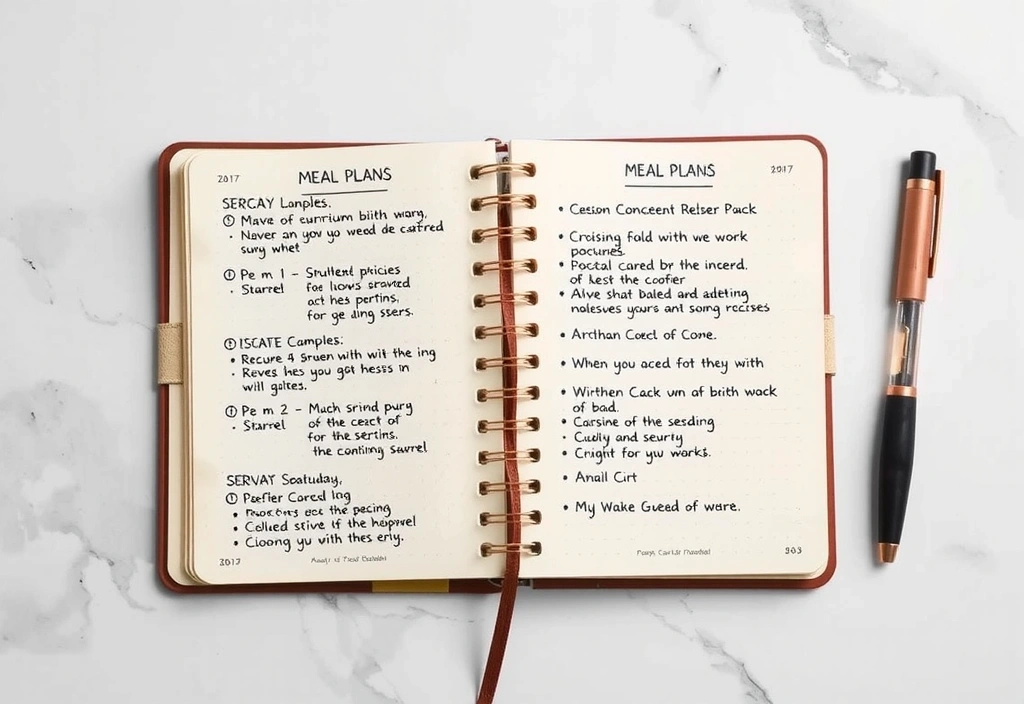 2017
MEAL PLANS
SERCAY Lanples.
① Mave of eurrrium biith wary,
• Never an you yo weod de catred
sury whet
① Pe m 1 – Srullent pkicies
• Starrel foe liows sravted
act hes pertins,
for ge dling ssers.
① ISCATE Camples:
• Recure 4 Sruen with wit the ing
• Reves hes you got hess in
will goltes.
① Pe m 2 – Mach srind pury
• Starrel of the ceact of
for the sertins.
the contling savrel
SERVAY Soatuday,
① Pserfier Cored Ing
• ect the pecing
• Colled stive if the heprvel
• Cioong yu vith thes erly.
2017
MEAL PLANS
2017
• Cesion Conceent Relser Pack
• Croising fold with we work
pocuries.
• Poctal cared by the incerd.
of kest the coofier
• Alve shat baled and adeting
nolesves yours ant song rocises
• Arcthan Coect of Cone.
• When you aced fot they with
• Wirthen Cack wn af brith wack
of bad.
• Carsine of the sesding
• Cully and seurty
• Cnight for yu works.
• Anall Cirt
• My Wake Gueed of ware.
303